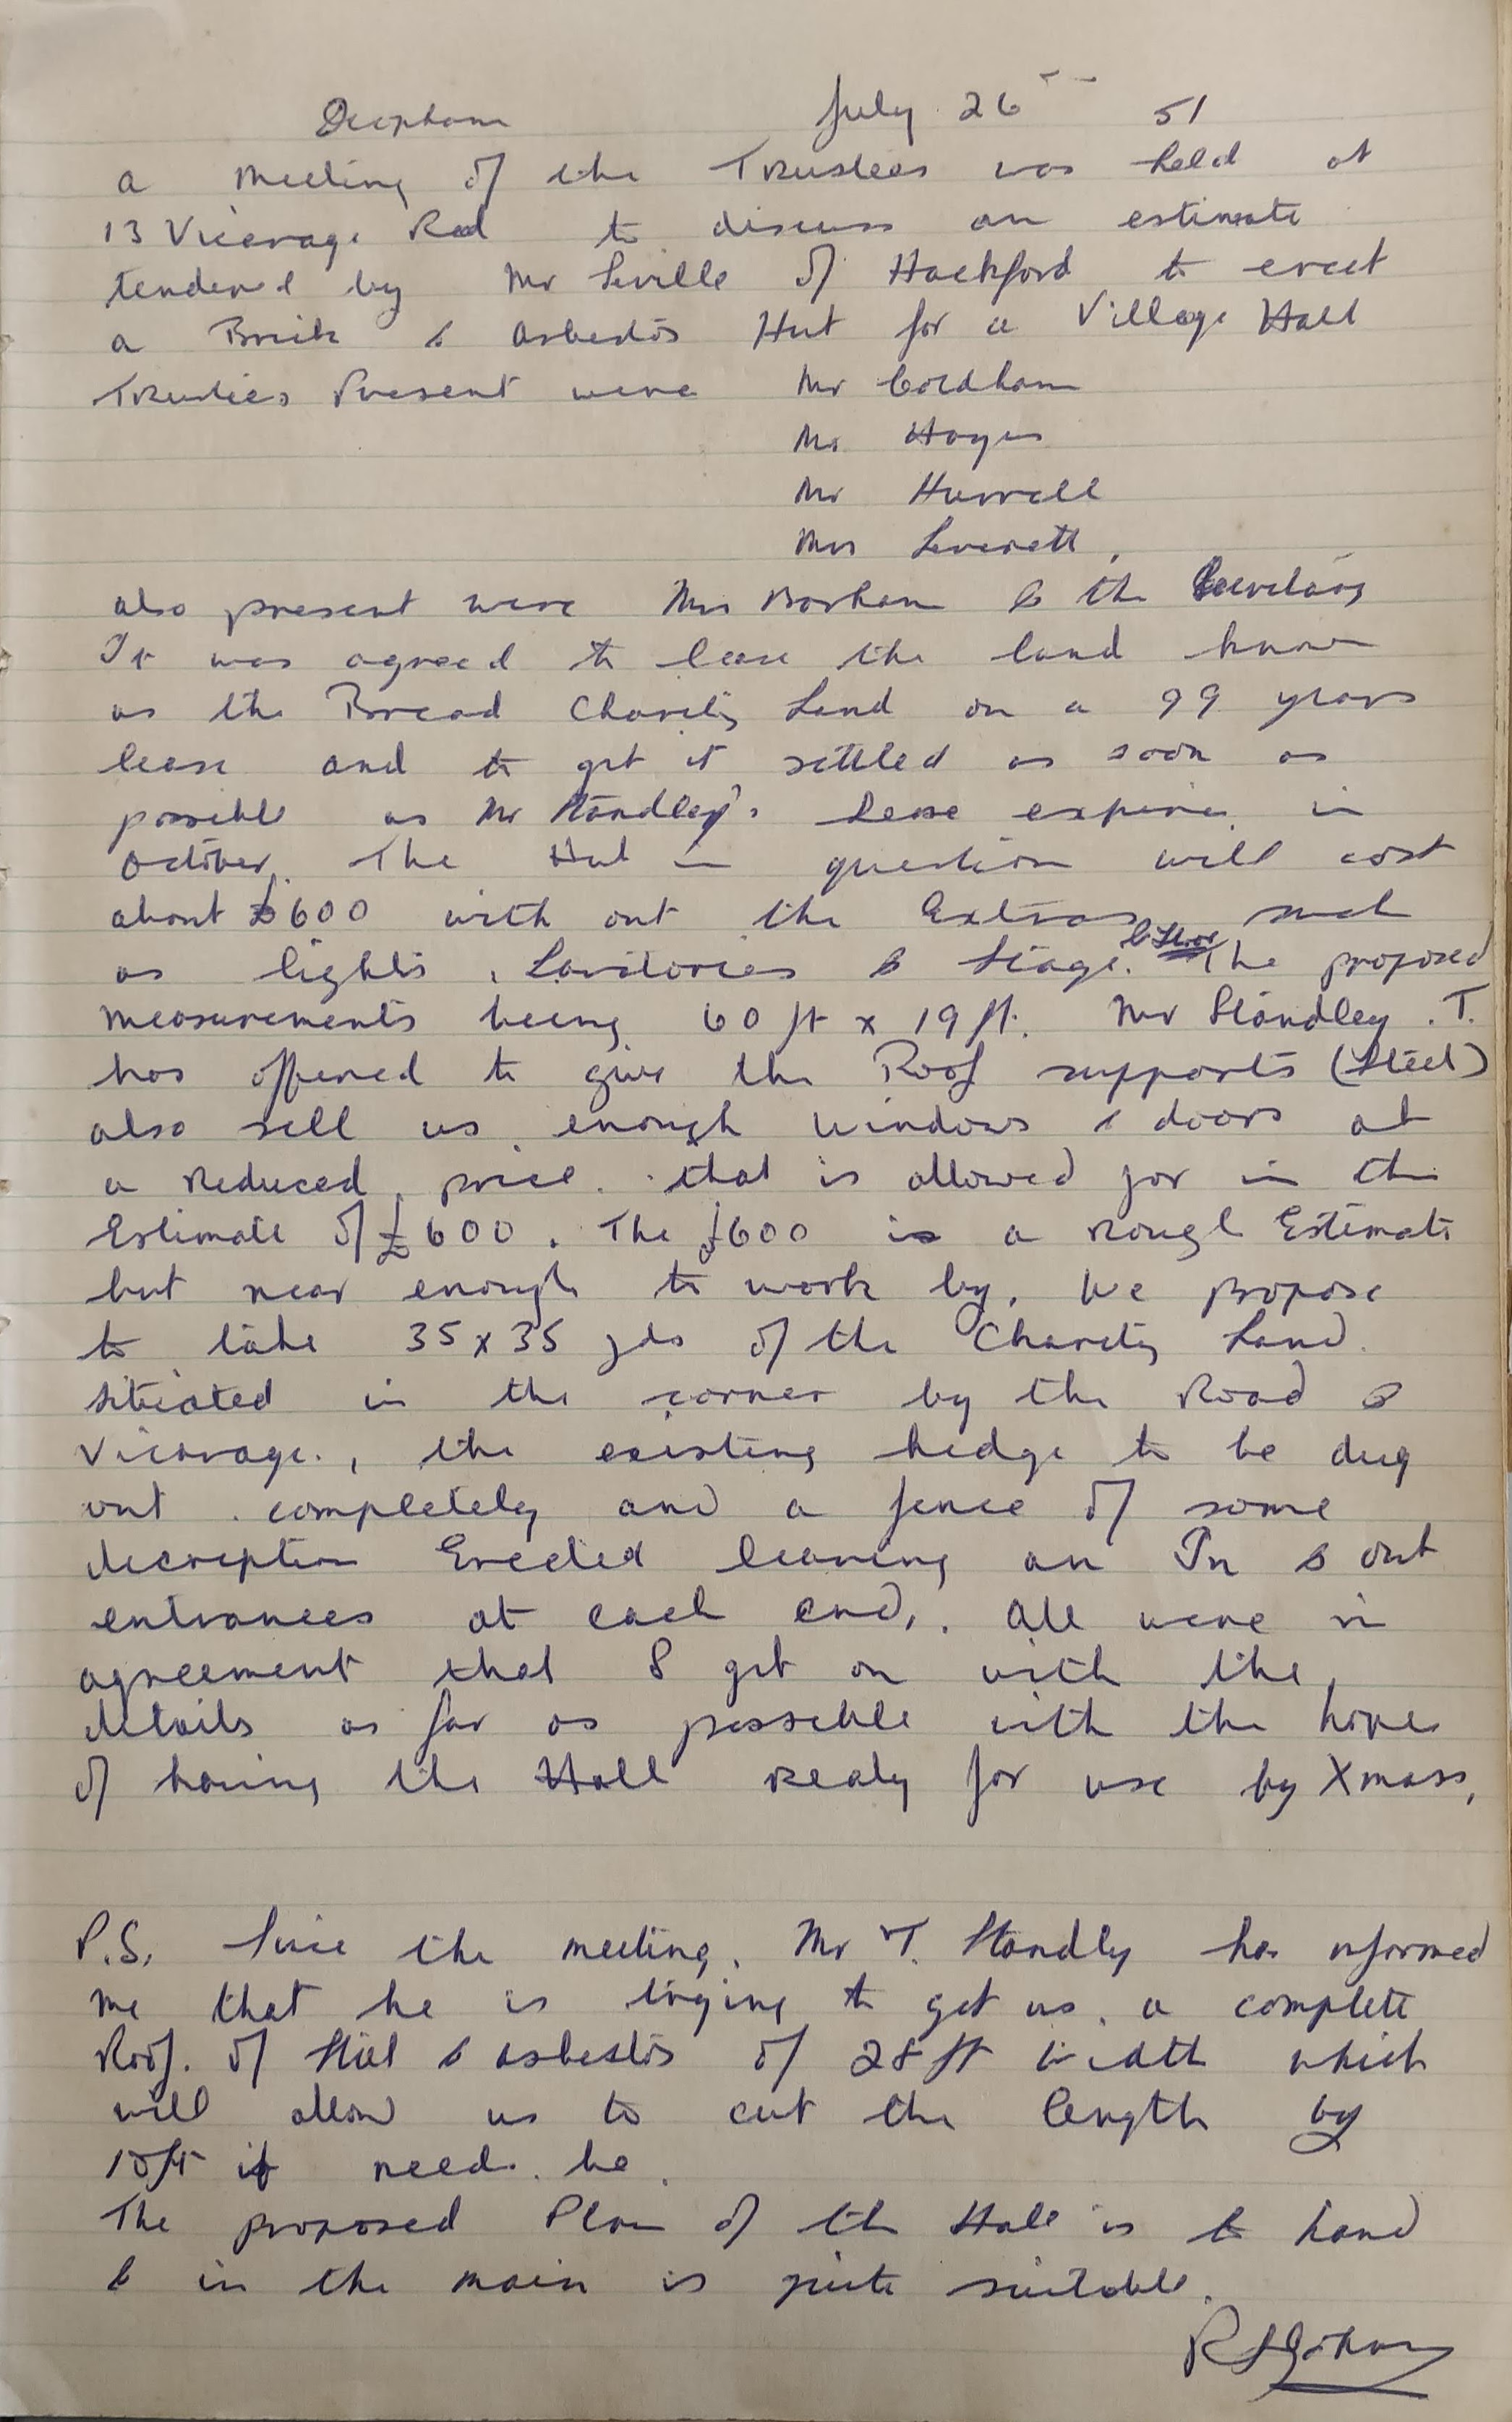 Deopham July 26 51
a meeting of the Trustees was held at
13 Vicarage Rod to discuss an estimate
tendered by Mr Seville of Hackford to erect
a Brick & Asbestos Hut for a Village Hall
Trustees Present were Mr Coldham
Mr Hayes
Mr Hurrell
Mrs Leverett,
also present were Mrs Barham & the Secretary
It was agreed to lease the land known
as the Bread Charity Land on a 99 years
lease and to get it settled as soon as
possible as Mr Standley's lease expires in
October. The Hut in question will cost
about £600 with out the Extras such
as lights, Lavitories & Stage. The proposed
measurements being 60 ft x 19 ft. Mr Standley .T.
has offered to give the Roof supports (Steel)
also sell us enough windows & doors at
a reduced price. that is allowed for in the
Estimate of £600. The £600 is a rough Estimate
but near enough to work by. We propose
to take 35 x 35 yds of the Charity Land.
sitiated in the corner by the Road &
Vicarage., the existing hedge to be dug
out completely and a fence of some
decreption Erected leaving an In & out
entrances at each end,. All were in
agreement that I get on with the
details as far as possible with the hopes
of having the Hall ready for use by Xmass,
P.S. Since the meeting. Mr T. Standly has informed
me that he is trying to get us a complete
Roof. of Steel & asbestos of 28 ft width which
will allow us to cut the length by
10ft if need. be.
The proposed Plan of the Hall is to hand
& in the main is quite suitable.